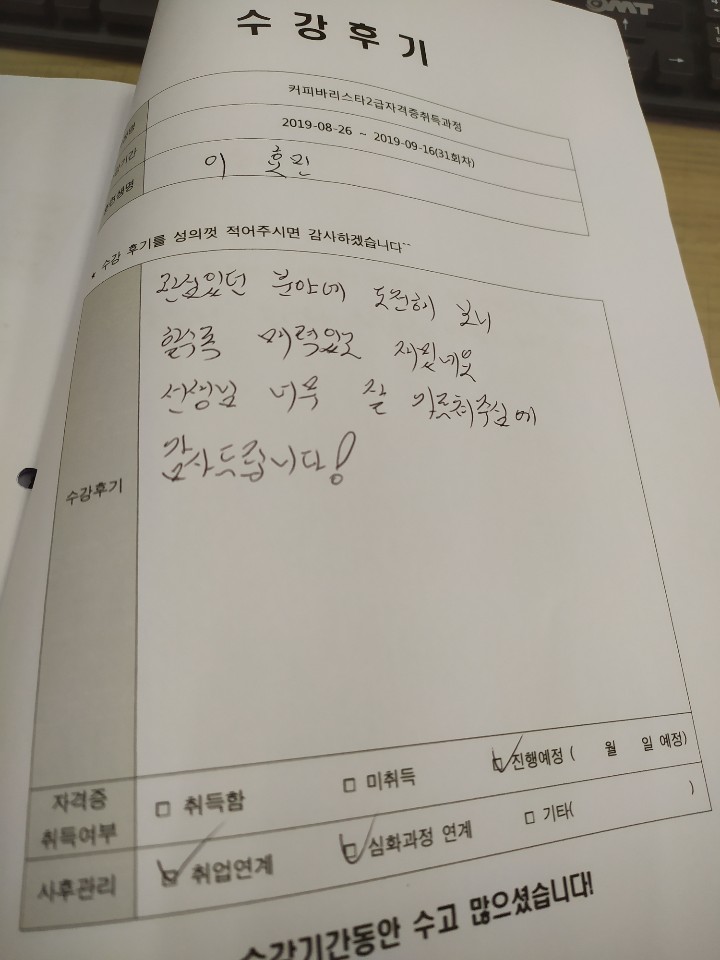 OMT
수강후기
커피바리스타2급자격증취득과정
2019-08-26 ~ 2019-09-16(31회차)
이
* 수강 후기를 성의껏 적어주시면 감사하겠습니다~~
수강후기
관심있던 분야에 도전해 보니
할수록 매력있고 재밌네요
선생님 너무 잘 가르쳐주심에
감사드립니다!
자격증 취득여부
□ 취득함 □ 미취득 □ 진행예정 ( 월 일 예정)
사후관리 □ 취업연계 □ 심화과정 연계 □ 기타( )
수강기간동안 수고 많으셨습니다!